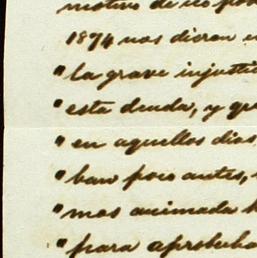 motivo de no po
1874 nos dieron e
" la grave injusti
" esta deuda, y qu
" en aquellos dias,
" ban poco antes,
" mas animada h
" para aprobaba